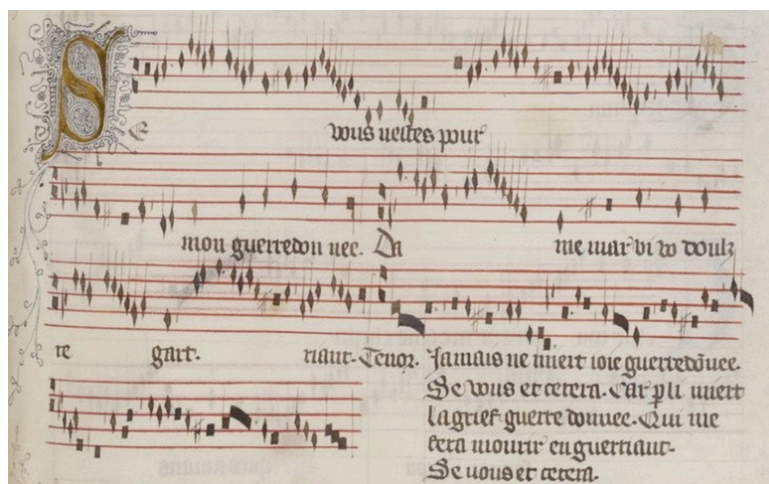 Se vous nestes pour
mon guerredon nee. Da me mar vi vo doulz
re gart. riant. Tenor. Jamais ne niert ioie guerredonee.
Se vous et cetera. Car pli niert
la grief guerre donnee. Qui me
fera mourir en guerriant.
Se vous et cetera.